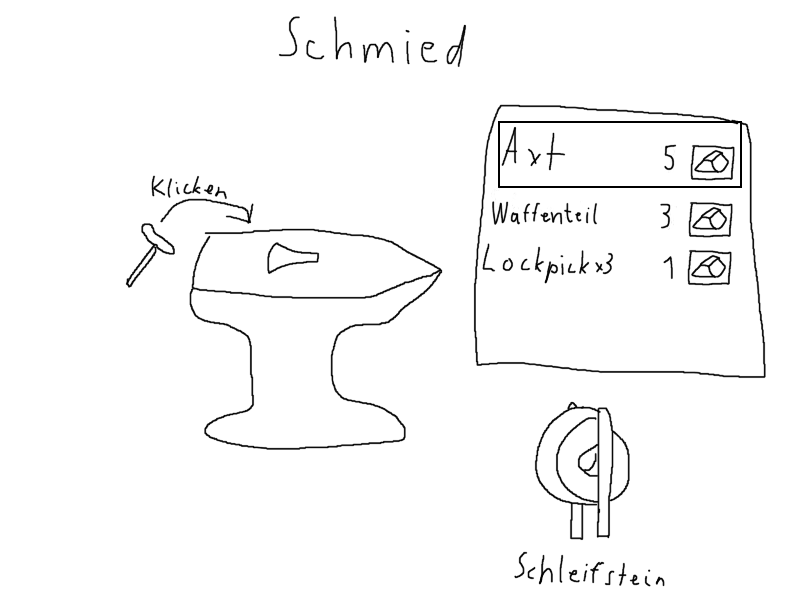 Schmied
Klicken
Axt 5
Waffenteil 3
Lockpick x3 1
Schleifstein